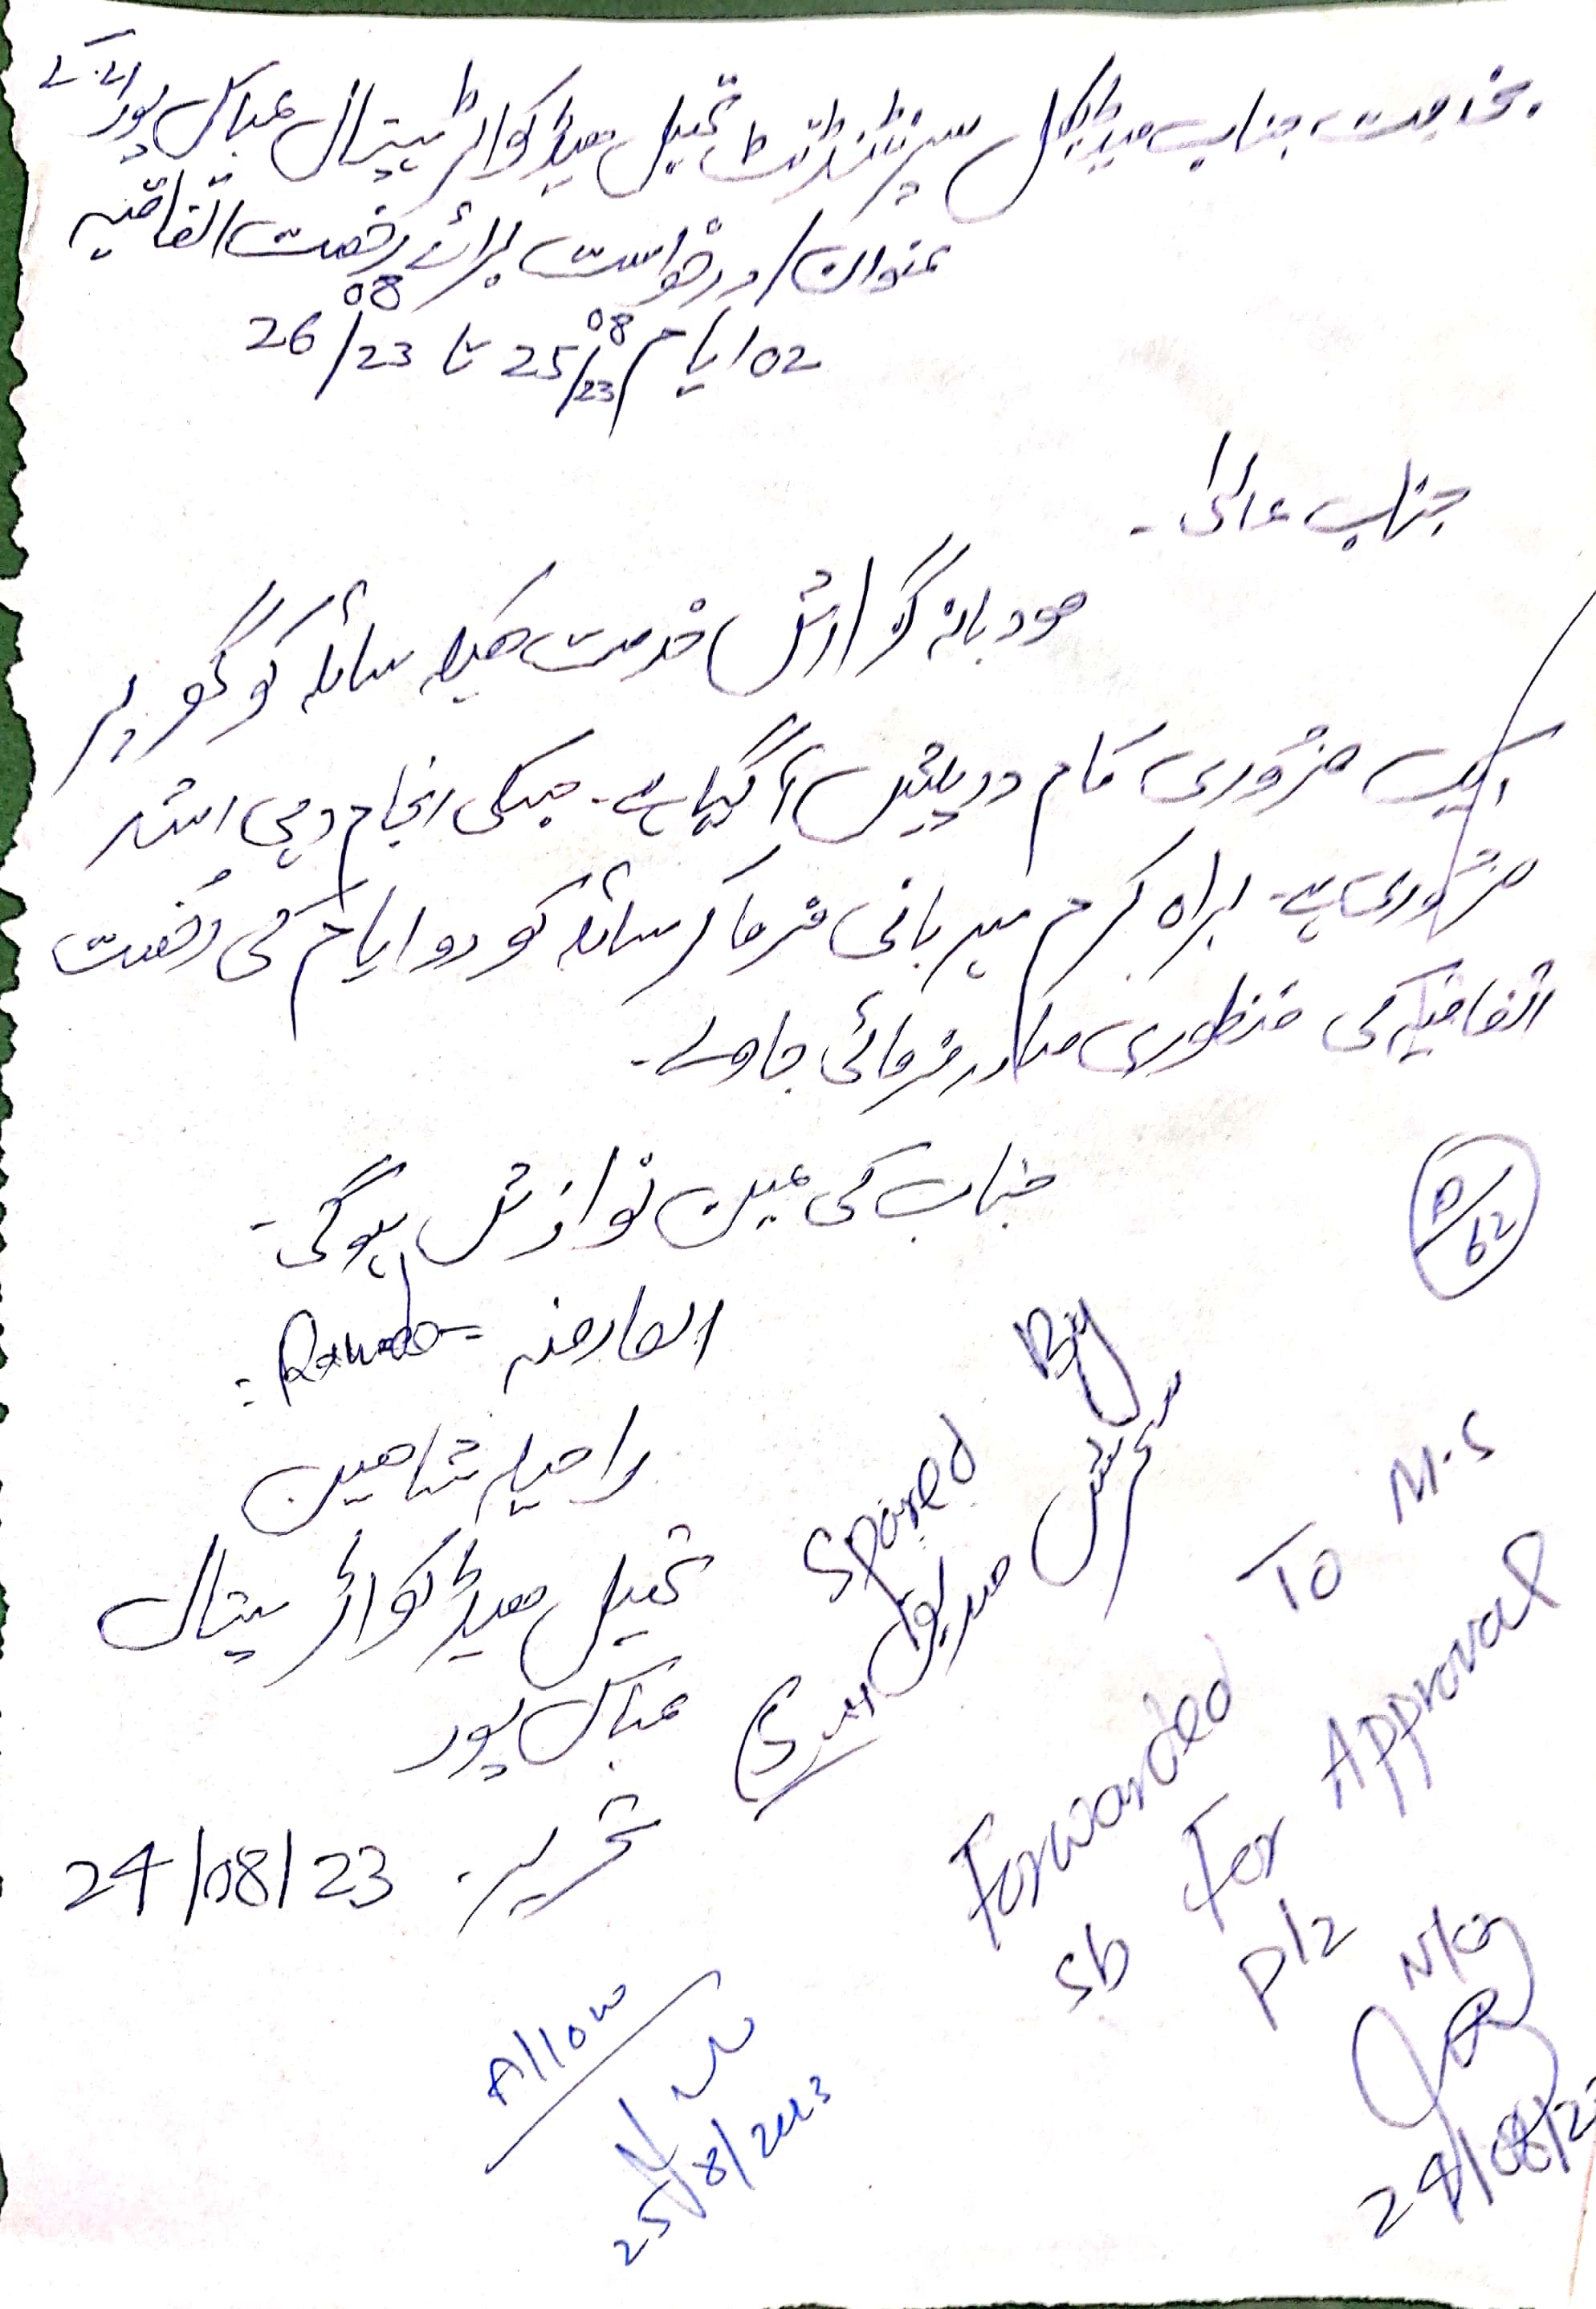 بخدمت جناب میڈیکل سپرنٹنڈنٹ تحصیل ہیڈ کواٹر ہسپتال عباس پور اے۔کے
عنوان/درخواست برائے رخصت اتفاقیہ
02 ایام 25/08/23 تا 26/08/23
جناب عالی۔
مودبانہ گزارش خدمت ہیکہ سائلہ کو گھر پر
ایک ضروری کام درپیش آ گیا ہے۔ جسکی انجام دہی اشد
ضروری ہے۔ براہ کرم مہربانی فرما کر سائلہ کو دو ایام کی رخصت
اتفاقیہ کی منظوری صادر فرمائی جاوے۔
جناب کی عین نوازش ہوگی۔
P/62
العارضہ
راحیلہ شاہین
تحصیل ہیڈ کواٹر ہسپتال
عباس پور
تحریر۔ 24/08/23
Spared By
سحرش صدیق
Forwarded To M.S
Sb For Approval
Plz
N/O
24/08/23
Allow
25/8/2023